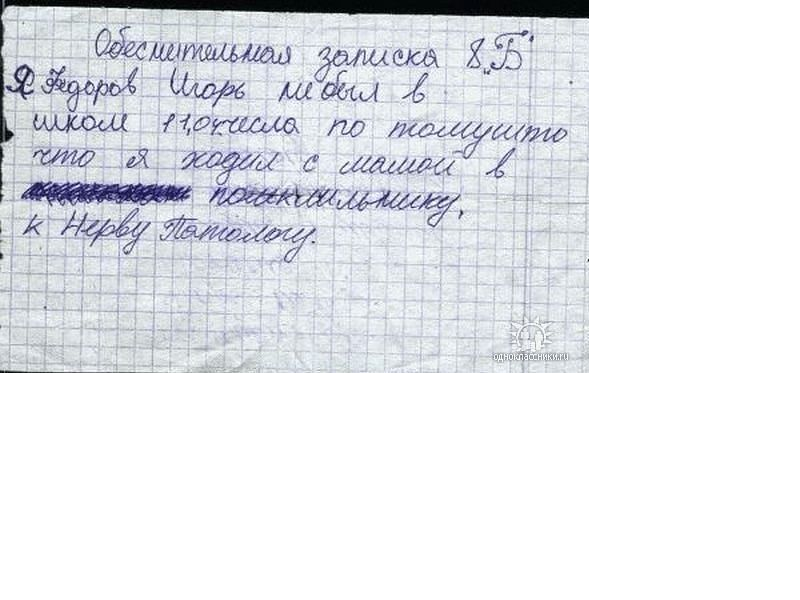 Обеснительная записка 8 „Б"
Я Фёдоров Игорь небыл в
школе 11,04числа по томушто
что я ходил с мамой в
к Нерву Патологу.
одноклассники.ru